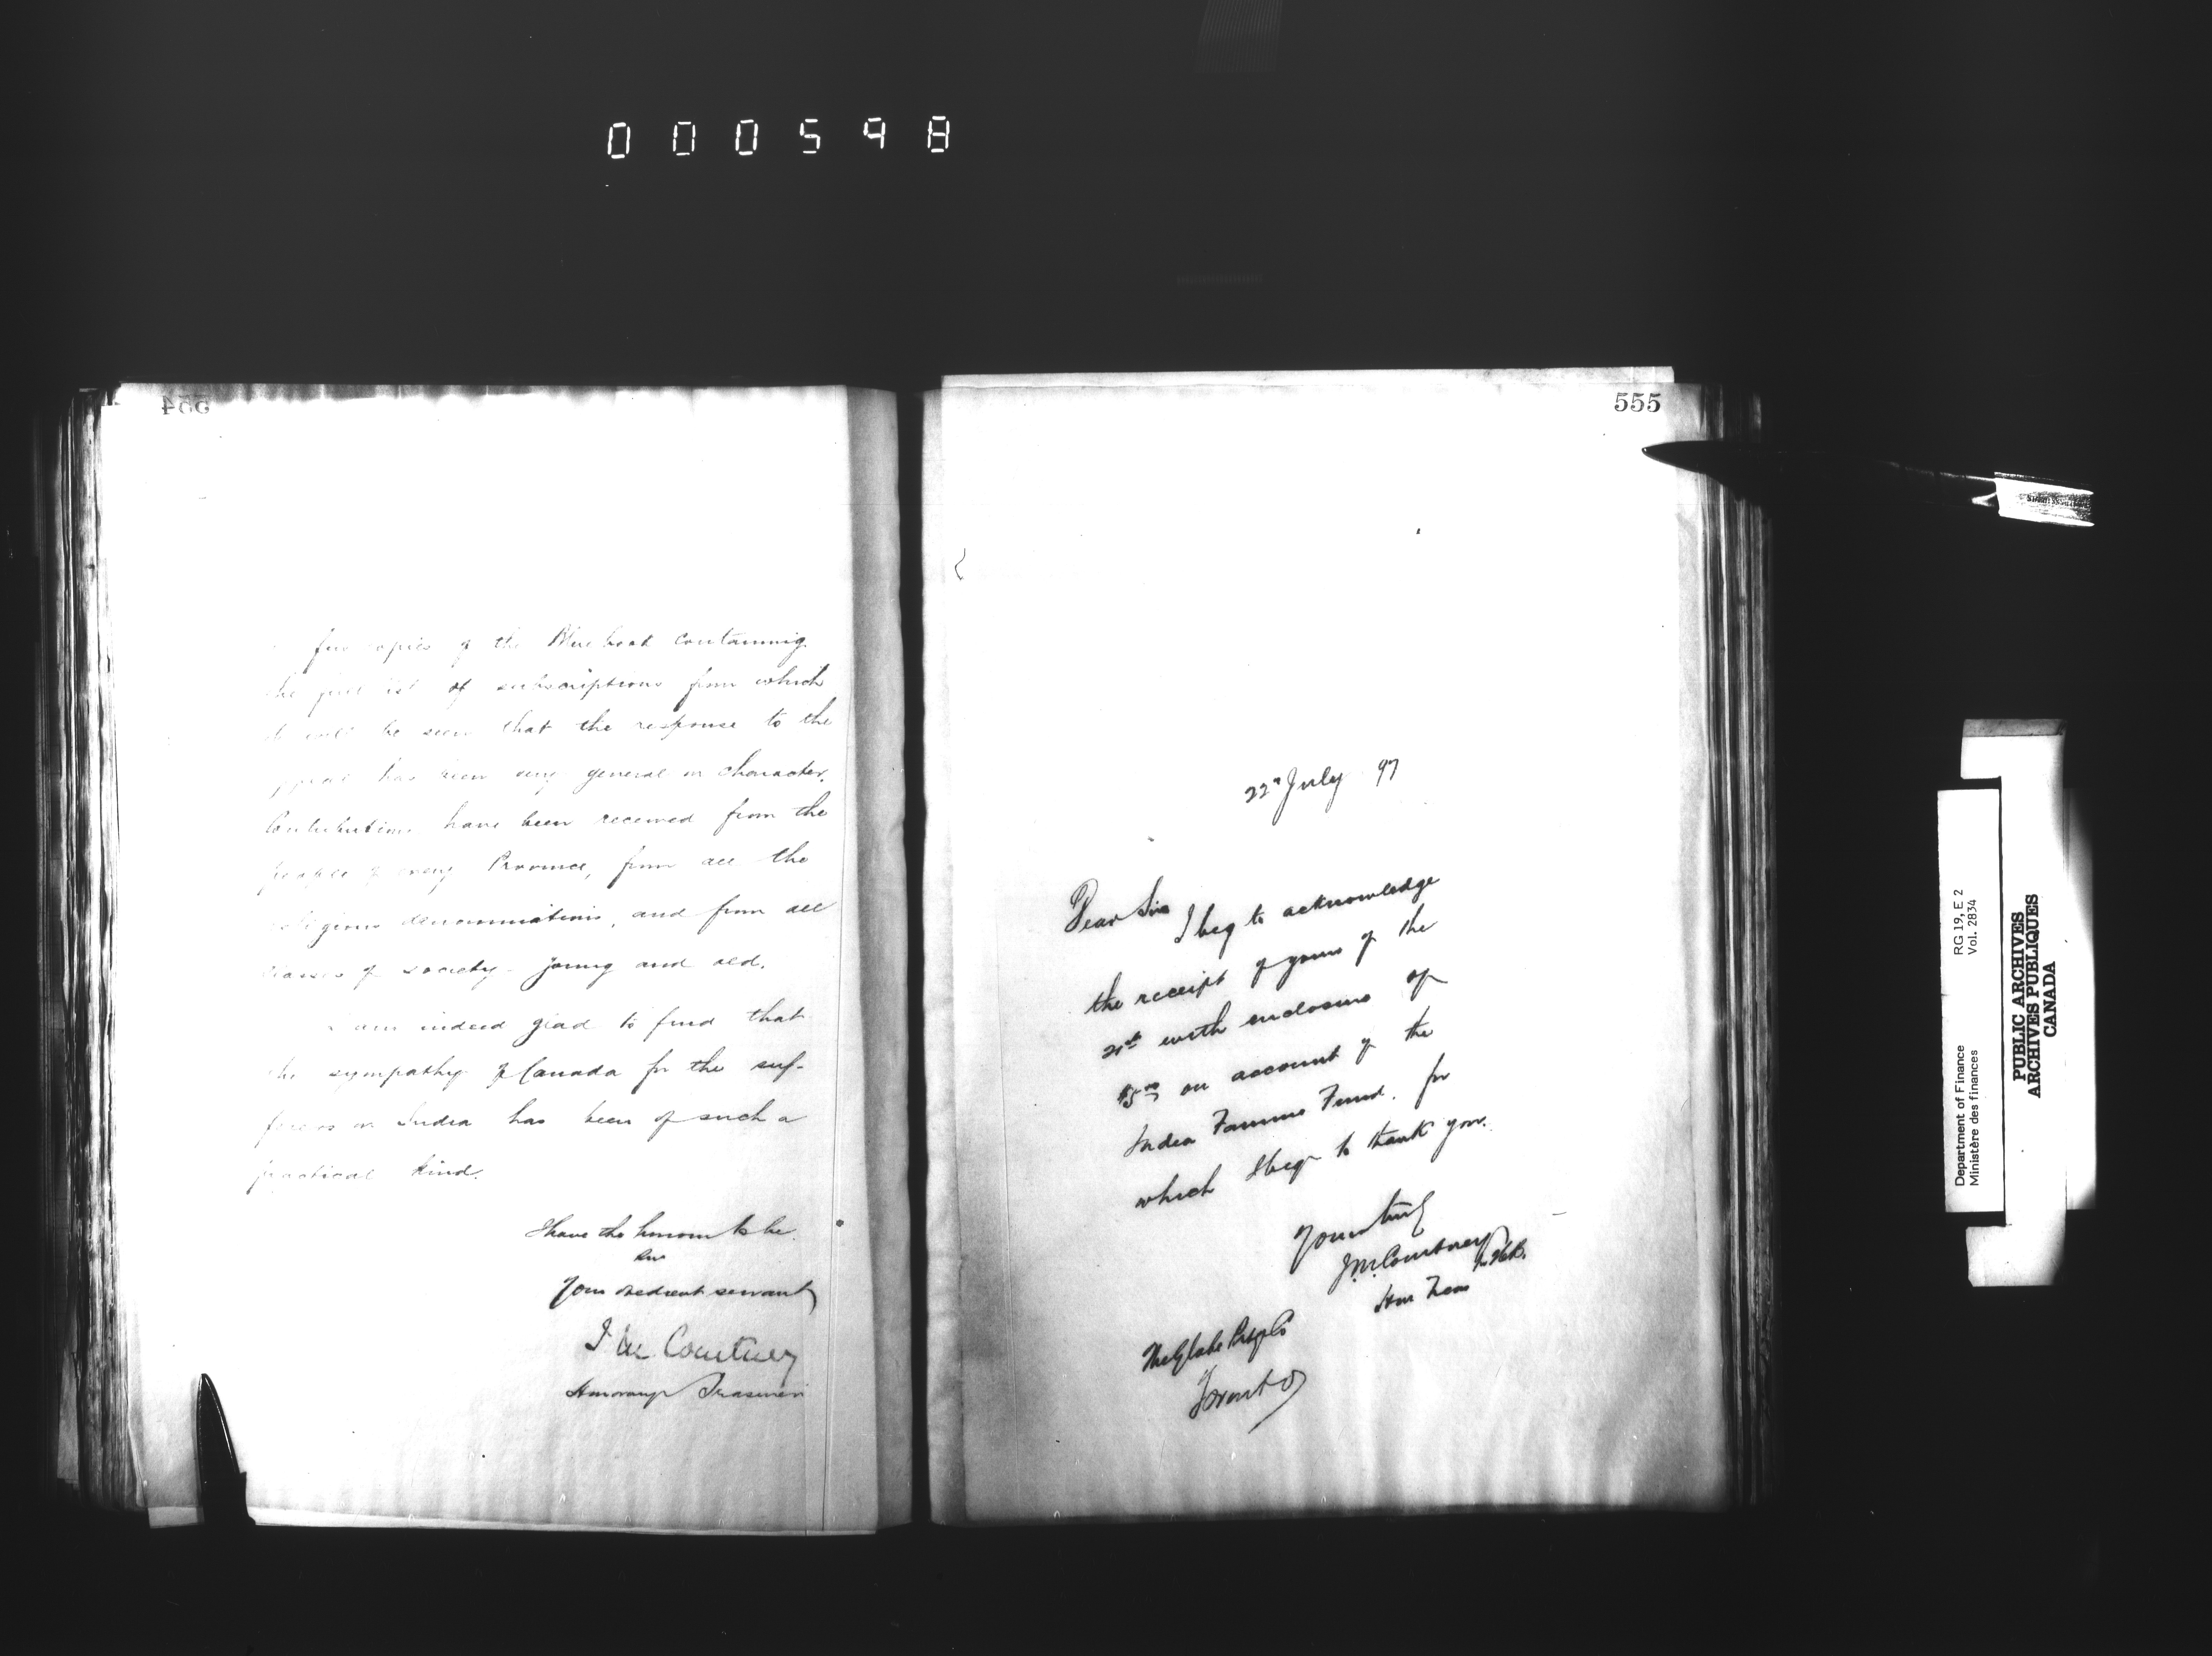 000598
554
few copies of the Blue book containing
the full list of subscriptions from which
it will be seen that the response to the
appeal has been very general in character.
Contributions have been received from the
people of every Province, from all the
religious denominations, and from all
classes of society - young and old.
I am indeed glad to find that
the sympathy of Canada for the suf-
ferers in India has been of such a
practical kind.
I have the honour to be
Sir
Your obedient servant
J M Courtney
Honorary Treasurer
555
22nd July 97
Dear Sir
I beg to acknowledge
the receipt of yours of the
21st with enclosure of
$5.00 on account of the
India Famine Fund, for
which I beg to thank you.
Yours truly
J.M. Courtney
Hon Treas
The Globe Ptg Co
Toronto
Department of Finance RG 19, E 2
Ministère des finances Vol. 2834
PUBLIC ARCHIVES
ARCHIVES PUBLIQUES
CANADA